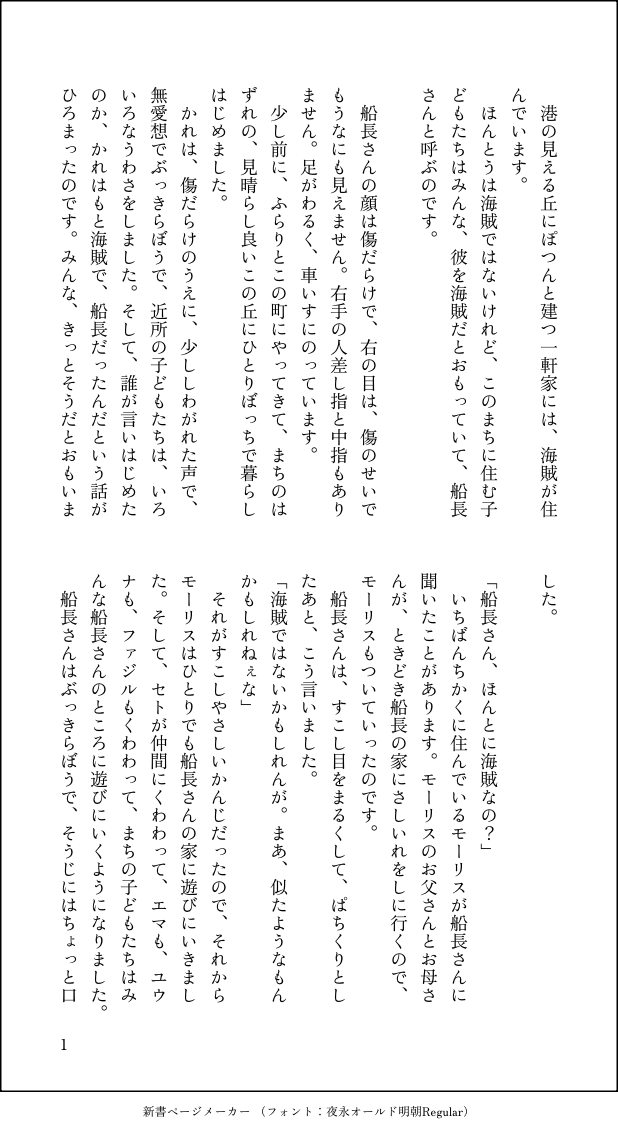 港の見える丘にぽつんと建つ一軒家には、海賊が住
んでいます。
　ほんとうは海賊ではないけれど、このまちに住む子
どもたちはみんな、彼を海賊だとおもっていて、船長
さんと呼ぶのです。
　船長さんの顔は傷だらけで、右の目は、傷のせいで
もうなにも見えません。右手の人差し指と中指もあり
ません。足がわるく、車いすにのっています。
　少し前に、ふらりとこの町にやってきて、まちのは
ずれの、見晴らし良いこの丘にひとりぼっちで暮らし
はじめました。
　かれは、傷だらけのうえに、少ししわがれた声で、
無愛想でぶっきらぼうで、近所の子どもたちは、いろ
いろなうわさをしました。そして、誰が言いはじめた
のか、かれはもと海賊で、船長だったんだという話が
ひろまったのです。みんな、きっとそうだとおもいま
した。
「船長さん、ほんとに海賊なの？」
　いちばんちかくに住んでいるモーリスが船長さんに
聞いたことがあります。モーリスのお父さんとお母さ
んが、ときどき船長の家にさしいれをしに行くので、
モーリスもついていったのです。
　船長さんは、すこし目をまるくして、ぱちくりとし
たあと、こう言いました。
「海賊ではないかもしれんが。まあ、似たようなもん
かもしれねぇな」
　それがすこしやさしいかんじだったので、それから
モーリスはひとりでも船長さんの家に遊びにいきまし
た。そして、セトが仲間にくわわって、エマも、ユウ
ナも、ファジルもくわわって、まちの子どもたちはみ
んな船長さんのところに遊びにいくようになりました。
　船長さんはぶっきらぼうで、そうじにはちょっと口
1
新書ページメーカー （フォント：夜永オールド明朝Regular）